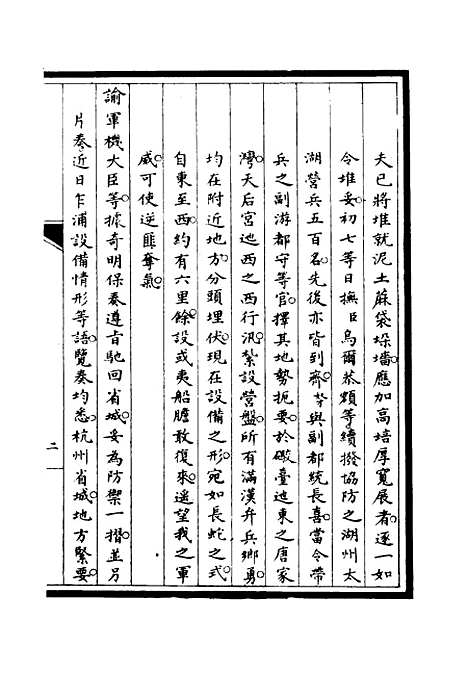 夫已將堆就泥土蔴袋垛墻應加高培厚寬展者逐一如
令堆妥初七等日撫臣烏爾恭額等續撥協防之湖州太
湖營兵五百名先後亦皆到齊等與副都統長喜當令帶
兵之副游都守等官擇其地勢扼要於礮臺迆東之唐家
灣天后宮迆西之西行汛紮設營盤所有滿漢弁兵鄉勇
均在附近地方分頭埋伏現在設備之形宛如長蛇之式
自東至西約有六里餘設或夷船膽敢復來遥望我之軍
威可使逆匪奪氣
諭軍機大臣等據奇明保奏遵旨馳回省城妥為防禦一摺並另
片奏近日乍浦設備情形等語覽奏均悉杭州省城地方緊要
二